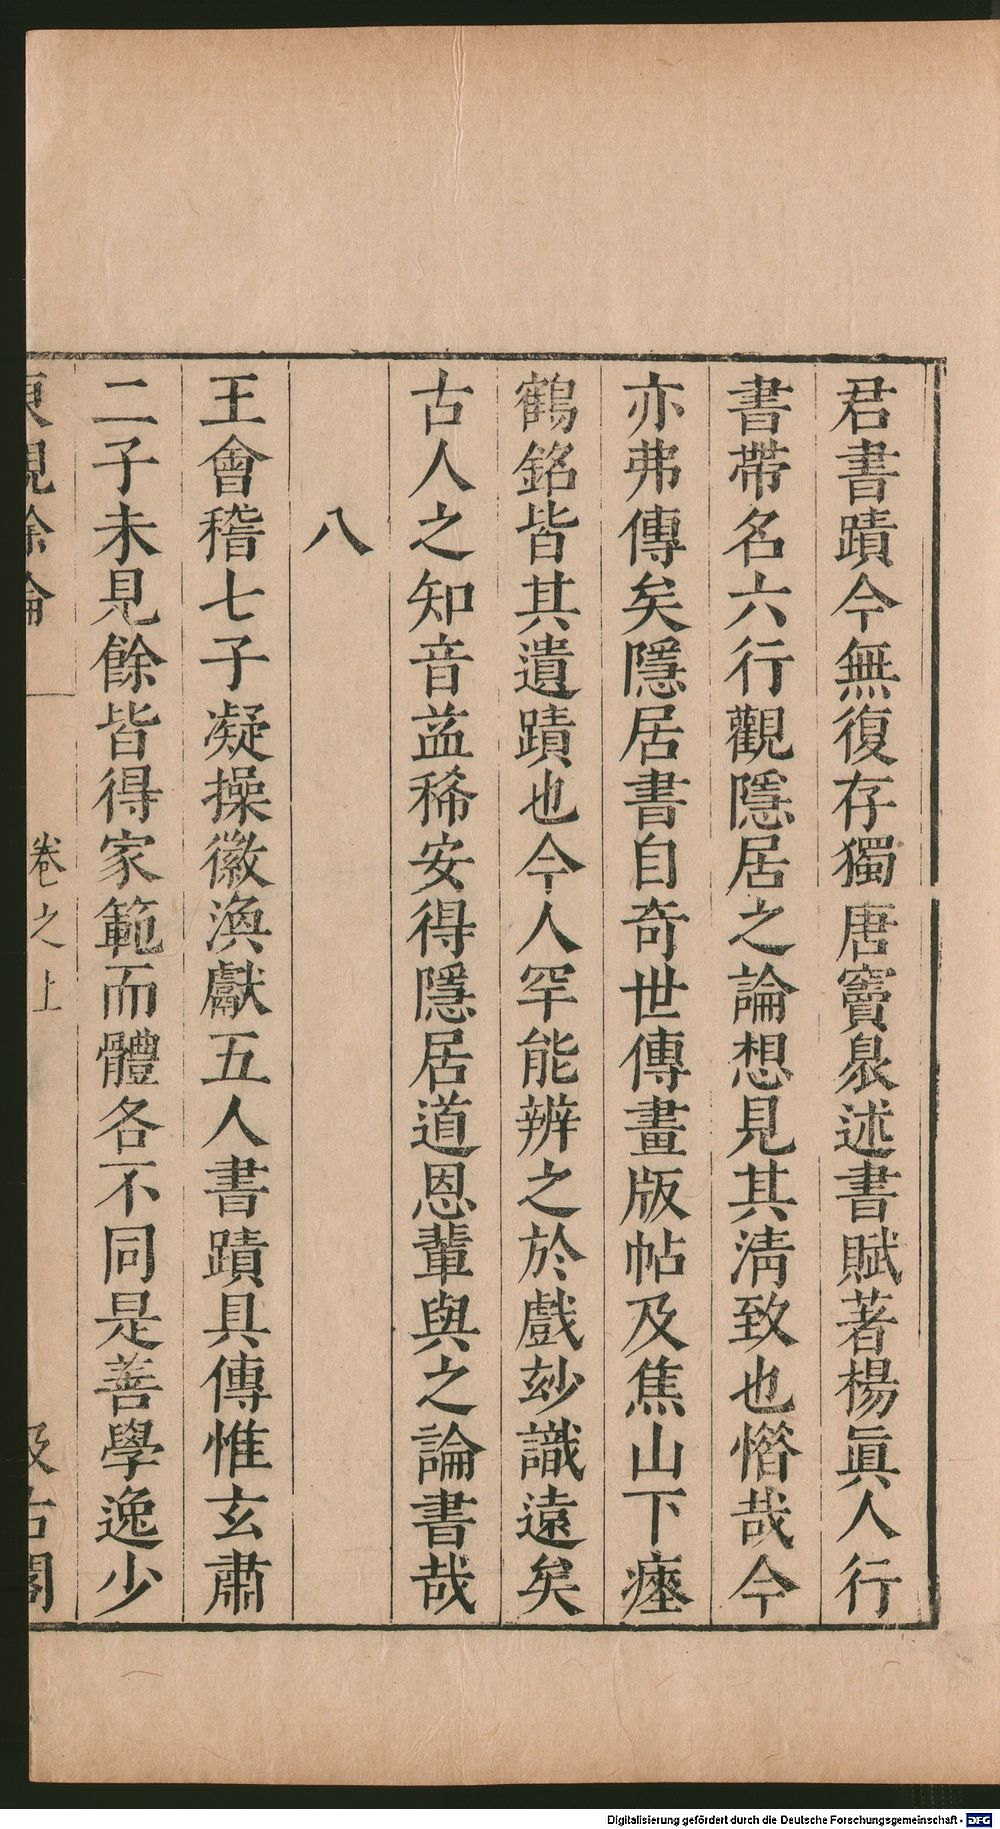 君書蹟今無復存獨唐竇臮述書賦著楊眞人行
書帶名六行觀隱居之論想見其淸致也㥽哉今
亦弗傳矣隱居書自奇世傳畫版帖及焦山下瘞
鶴銘皆其遺蹟也今人罕能辨之於戲玅識遠矣
古人之知音葢稀安得隱居道恩輩與之論書哉
八
王會稽七子凝操徽渙獻五人書蹟具傳惟玄肅
二子未見餘皆得家範而體各不同是善學逸少
東觀餘論 卷之上 汲古閣
Digitalisierung gefördert durch die Deutsche Forschungsgemeinschaft - DFG